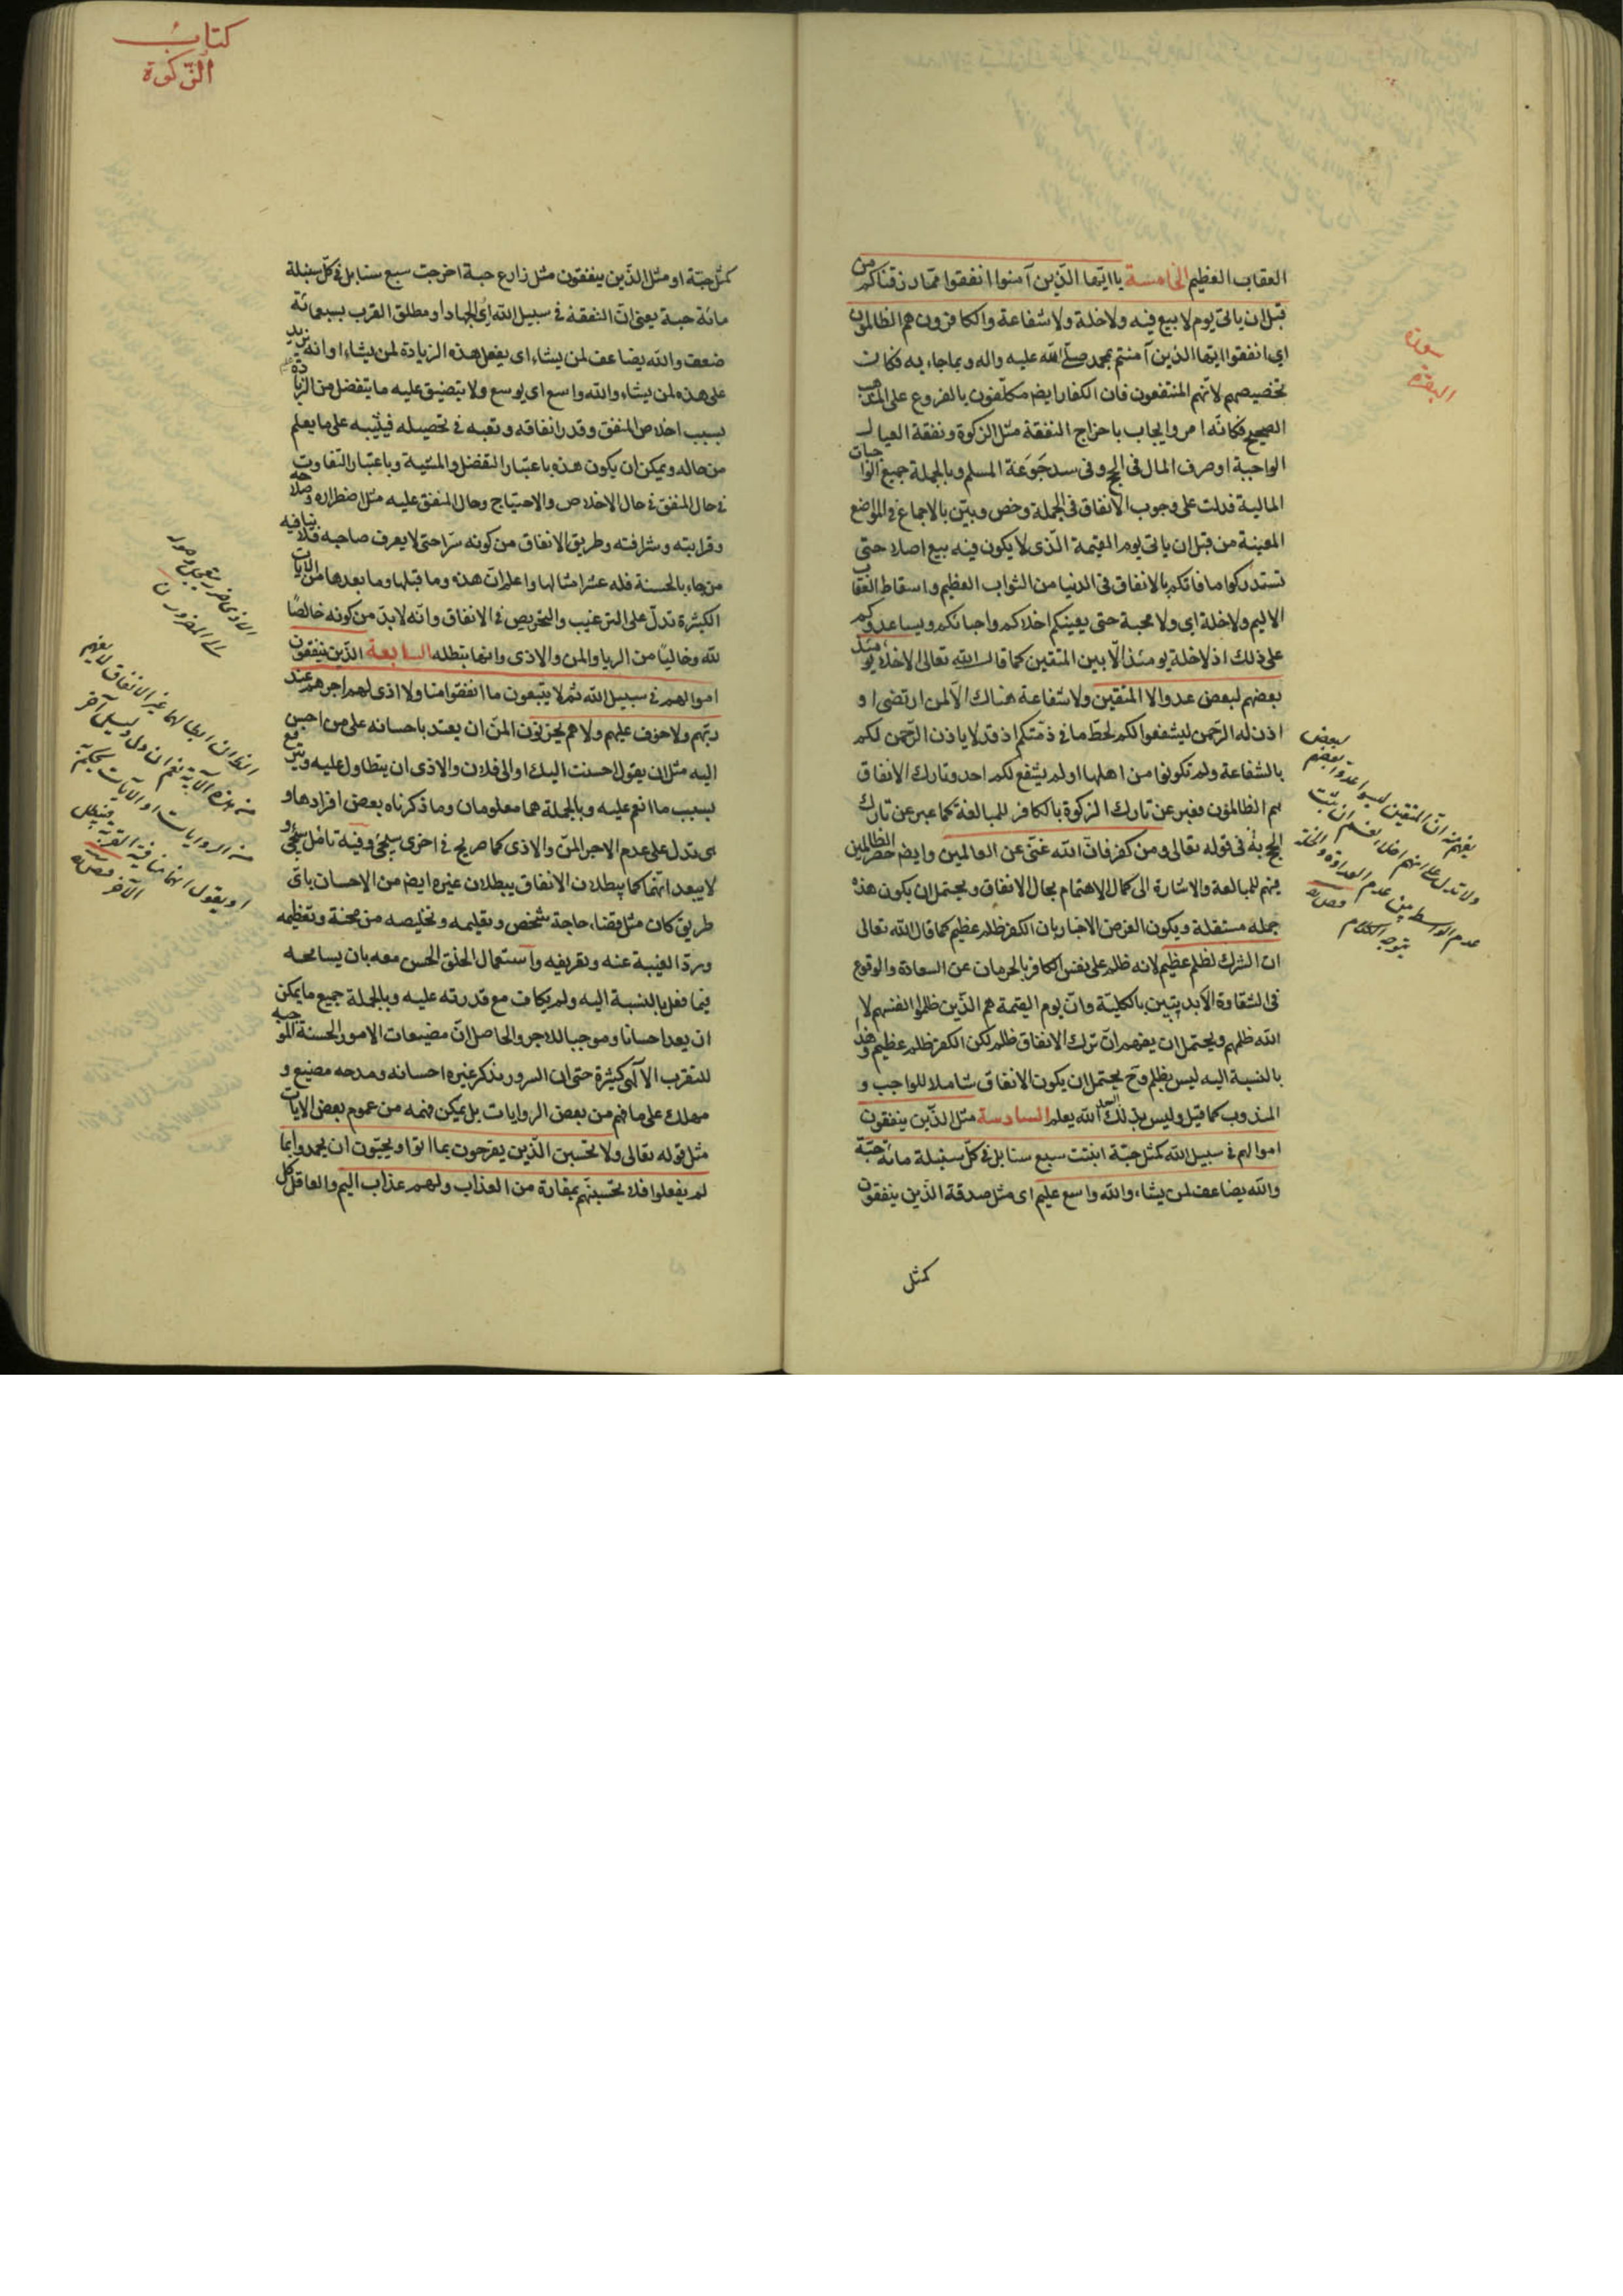 العقاب العظيم الخامسة يا ايّها الّذين آمنوا انفقوا ممّا رزقناكم من
قبل ان ياتى يوم لا بيع فيه ولا خلة ولا شفاعة والكافرون هم الظالمون
اى انفقوا ايتها الذين آمنتم بمحمد صلّى الله عليه واله وبما جاء به فكان
تخصيصهم لانّهم المنتفعون فان الكفار ايضم مكلّفون بالفروع على المذهب
الصحيح فكانّه امر وايجاب باخراج النفقة مثل الزكوة ونفقة العيال
الواجبة او صرف المال فى الحج وفى سد جَوعَة المسلم وبالجملة جميع الواجبات
المالية فدلت على وجوب الانفاق فى الجملة وخص وبيّن بالاجماع فى المواضع
المعينة من قبل ان ياتى يوم القيمة الّذى لا يكون فيه بيع اصلا حتى
تستدركوا ما فاتكم بالانفاق فى الدنيا من الثواب العظيم واسقاط العقاب
الاليم ولا خلة اى ولا محبة حتى يعينكم اخلاكم واحبائكم ويساعدوكم
على ذلك اذ لا خلة يومئذ الّا بين المتقين كما قال الله تعالى الاخلاء يومئذ
بعضهم لبعض عدو الا المتقين ولا شفاعة هناك الّا لمن ارتضى او
اذن له الرحمن ليشفعوا لكم لحط ما فى ذمتكم اذ قد لا ياذن الرّحمن لكم
بالشفاعة ولم تكونوا من اهلها او لم يشفع لكم احد وتارك الانفاق
هم الظالمون فعبر عن تارك الزكوة بالكافر للمبالغة كما عبر عن تارك
الحج به فى قوله تعالى ومن كفر فان الله غنّى عن العالمين وايضم حصر الظالمين
فيهم للمبالغة والاشارة الى كمال الاهتمام بحال الانفاق ويحتمل ان يكون هذه
جملة مستقلة ويكون الغرض الاخبار بان الكفر ظلم عظيم كما قال الله تعالى
ان الشرك لظلم عظيم لانه ظلم على نفس الكافر بالحرمان عن السعادة والوقوع
فى الشقاوة الابديتين بالكليّة وانّ يوم القيمة هم الّذين ظلموا انفسهم لا
الله ظلمهم ويحتمل ان يفهم انّ ترك الانفاق ظلم لكن الكفر ظلم عظيم وهذا
بالنسبة اليه ليس بظلم وح يحتمل ان يكون الانفاق شاملا للواجب و
المندوب كما قيل وليس بذلك البعد الله يعلم السادسة مثل الذّين ينفقون
اموالهم فى سبيل الله كمثل حبّة انبتت سبع سنابل فى كلّ سنبلة مائة حبّة
والله يضاعف لمن يشاء والله واسع عليم اى مثل صدقة الّذين ينفقون
كمثل
سورة
البقرة
كتابُ
الزّكوة
كمثل حبّة او مثل الذّين ينفقون مثل زارع حبة اخرجت سبع سنابل فى كلّ سنبلة
مائة حبة يعنى انّ النفقة فى سبيل الله اى الجهاد او مطلق القرب بسبعمائة
ضعف والله يضاعف لمن يشاء اى يفعل هذه الزيادة لمن يشاء او انه يزيد
على هذه لمن يشاء والله واسع اى يوسع ولا يتضيق عليه ما يتفضل من الزيادة
بسبب اخلاص المنفق وقدر انفاقه وتعبه فى تحصيله فيثيبه على ما يعلم
من حاله ويمكن ان يكون هذه باعتبار التفضل والمشية وباعتبار التفاوت
فى حال المنفق فى حال الاخلاص والاحتياج وحال المنفق عليه مثل اضطراره وصلاحه
وقرابته وشرافته وطريق الانفاق من كونه سرّا حتى لا يعرف صاحبه فلا ينافيه
من جاء بالحسنة فله عشر امثالها واعلم انّ هذه وما قبلها وما بعدها من الايات
الكثيرة تدلّ على الترغيب والتحريص فى الانفاق وانّه لابدّ من كونه خالصًا
لله وخاليًا من الريا والمن والاذى وانها تبطله السابعة الذّين ينفقون
اموالهم فى سبيل الله ثم لا يتبعون ما انفقوا منا ولا اذى لهم اجرهم عند
ربّهم ولا خوف عليهم ولا هم يحزنون المنّ ان يعتد باحسانه على من احسن
اليه مثل ان يقول احسنت اليك او الى فلان والاذى ان يتطاول عليه ويترفع
بسبب ما انعم عليه وبالجملة هما معلومان وما ذكرناه بعض افرادها و
هى تدل على عدم الاجر بالمنّ والاذى كما صريح فى اخرى سيجئ وفيه تامل سيجئ و
لا يبعد انّهما كما يبطلان الانفاق يبطلان غيره ايضم من الاحسان باىّ
طريق كان مثل قضاء حاجة شخص وتعليمه وتخليصه من محنة وتعظيمه
وردّ الغيبة عنه وتعريفه واستعمال الخلق الحسن معه بان يسامحه
فيما فعل بالنسبة اليه ولم يكافِ مع قدرته عليه وبالجملة جميع ما يمكن
ان يعد احسانا وموجبا للاجر والحاصل انّ مضيعات الامور الحسنة الموجبة
للتقرب الالهى كثيرة حتى ان السرور بذكر غيره احسانه ومدحه مضيع و
مهلك على ما فهم من بعض الروايات بل يمكن فهمه من عموم بعض الايات
مثل قوله تعالى ولا تحسبن الّذين يفرحون بما اتوا ويحبّون ان يحمدوا بما
لم يفعلوا فلا تحسبنّهم بمفازة من العذاب ولهم عذاب اليم والعاقل كل